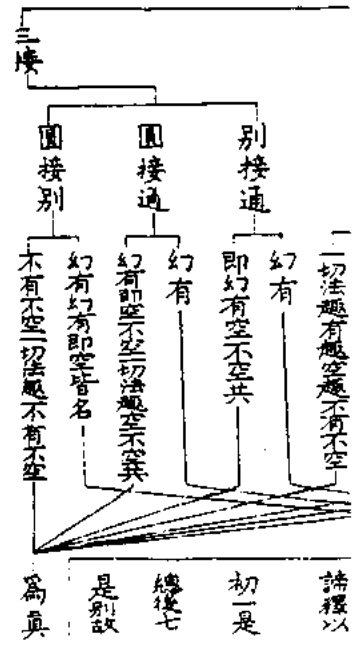 三接
別接通
圓接通
圓接別
一切法趣有趣空趣不有不空
幻有
即幻有空不空共
幻有
幻有即空不空一切法趣空不空共
幻有幻有即空皆名
不有不空一切法趣不有不空
諦釋以
初一是
總後七
是別故
為真